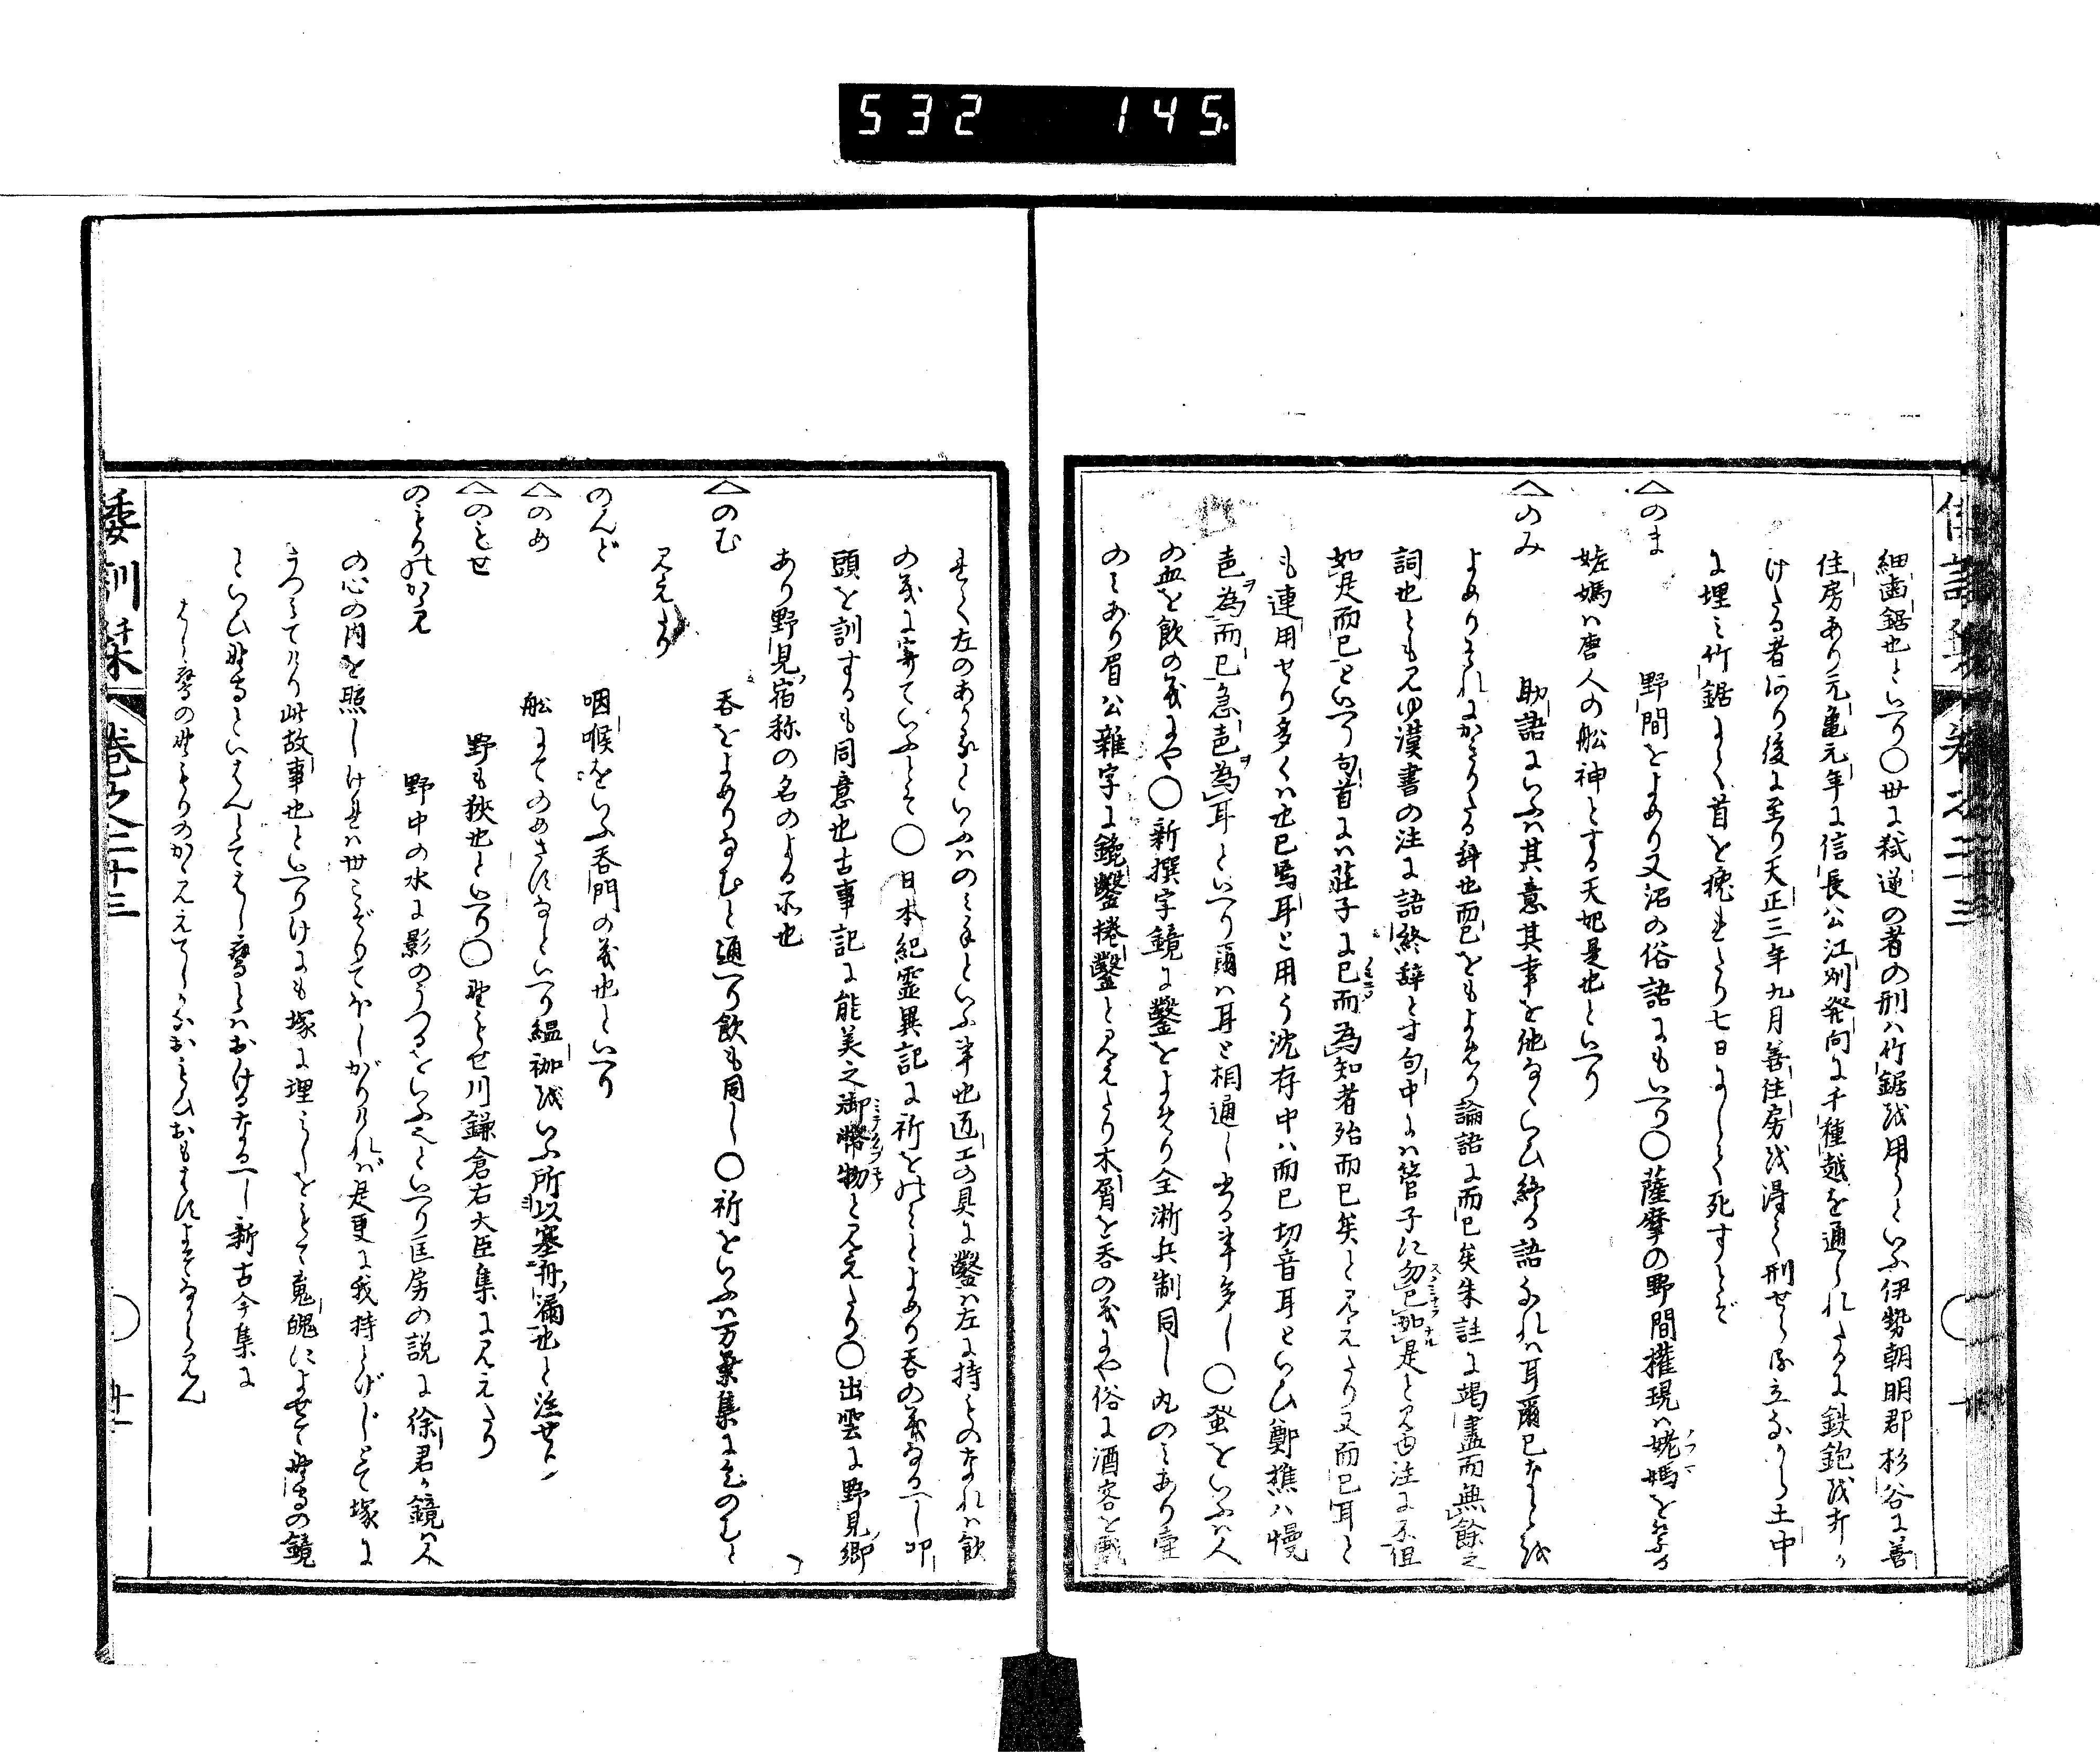 532 145.
細歯鋸也といへり○世に弑逆の者の刑ハ竹鋸を用うといふ伊勢朝明郡杉谷に善
住房あり元亀元年に信長公江州発向に千種越を通られたるに鉄炮を打か
けたる者あり後に至り天正三年九月善住房を得て刑せらる立なから土中
に埋ミ竹鋸にて首を挽せたり七日にして死すとぞ
△のま 野間をよめり又沼の俗語にもいへり○薩摩の野間権現ハ姥媽を祭る
娘媽ハ唐人の舩神とする天妃是也といへり
△のみ 助語にいふハ其意其事を他なくいひ終る語なれハ耳爾已なとを
よめりそれにかきりたる辞也而已をもよめり論語に而已矣朱註に竭盡而無餘之
詞也とも見ゆ漢書の注に語終辞とす句中にハ管子に勿已如是と見ゆ注に不但
如是而已といへり句首にハ荘子に已而為知者殆而已矣と見えたり又而已耳と
も連用せり多くハ也已焉耳と用う沈存中ハ而已切音耳といひ鄭樵ハ慢
声為而已急声為耳といへり爾ハ耳と相通し書る事多し○蚤をいふハ人
の血を飲の義にや○新撰字鏡に鑿をよめり全淅兵制同し丸のミあり壷
のミあり眉公雑字に鑱鑿捲鑿と見えたり木屑を呑の義にや俗に酒客を戯
れて左のあかるといふハのミ手といふ事也匠工の具に鑿ハ左に持ものなれハ飲
の義に寄ていふとそ○日本紀霊異記に祈をのミとよめり呑の義なるへし叩
頭を訓するも同意也古事記に能美之御幣物と見えたり○出雲に野見郷
あり野見宿祢の名のよる所也
△のむ 呑をよめりなむと通へり飲も同し○祈をいふハ万葉集に乞のむと
見えたり
のんど 咽喉をいふ呑門の義也といへり
△のめ 舩にてのめさすなといへり緼袽をいふ所以塞舟漏也と注せり
△のもせ 野も狭也といへり○野もせ川鎌倉右大臣集に見えたり
のもりのかゝミ 野中の水に影のうつるをいふへといへり匡房の説に徐君か鏡ハ人
の心の内を照しけれハ世こぞりてほしがりけれバ是更に我持とげじとて塚に
うつミてけり此故事也といへりけにも塚に埋ミしをもて鬼魄によせて野守の鏡
といひ野守といはんとてはし鷹とハおけるなるへし新古今集に
はし鷹の野もりのかゝみえてしかなおもひおもはすよそなからみん
倭訓栞 巻之二十三